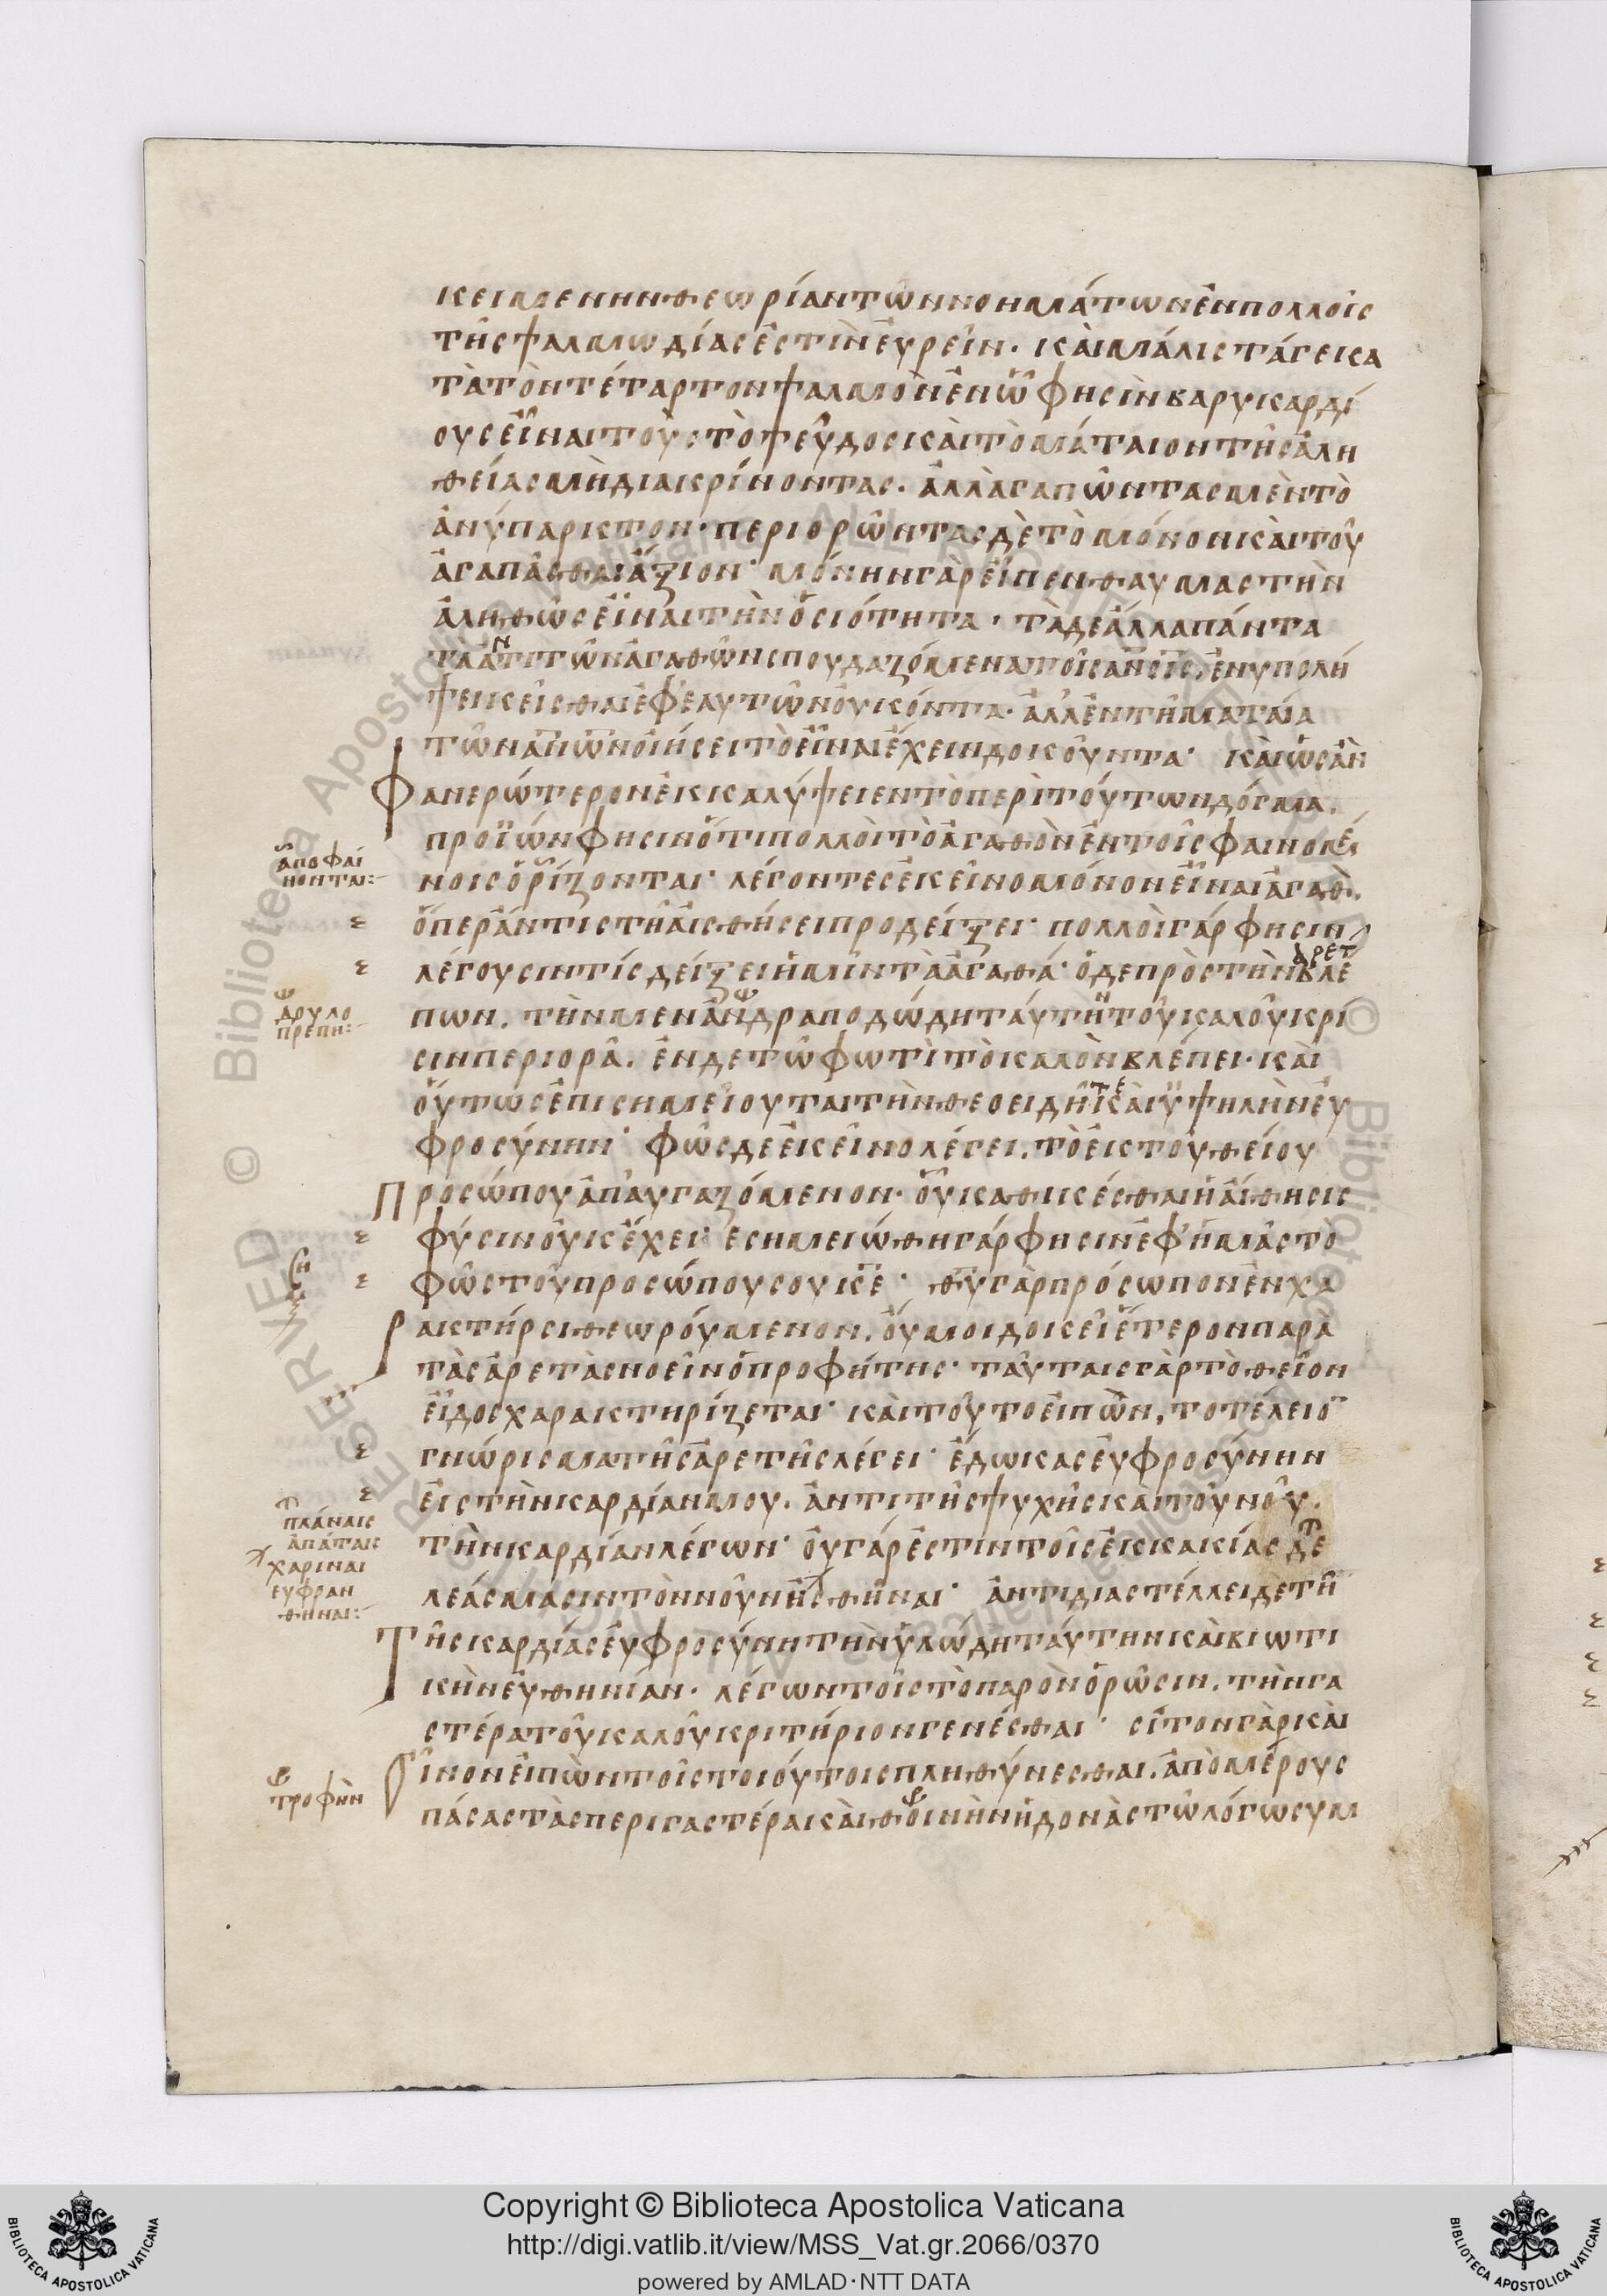 κειμενην θεωρίαν τῶν νοημάτων ἐν πολλοῖς
τῆς ψαλμωδίας ἐστὶν εὑρεῖν· καὶ μάλιστά γε κα
τὰ τὸν τέταρτον ψαλμὸν ἐν ὧ φησὶν βαρυκαρδί
ους εἶναι τοὺς τὸ ψεῦδος καὶ τὸ μάταιον τῆς ἀλη
θείας μὴ διακρίνοντας. ἀλλ ἀγαπῶντας μὲν τὸ
ἀνύπαρκτον· περιορῶντας δὲ τὸ μόνον καὶ τοῦ
ἀγαπᾶσθαι ἄξιον· μόνην γὰρ εἶπεν θαυμαστὴν
ἀληθῶς εἶναι τὴν ὁσιότητα· τὰ δε ἄλλα πάντα
τῶν ἀγαθῶν σπουδαζόμενα τοῖς ἀνοῖς, ἐν υπολή
ψει κεῖσθαι ἐφ εαυτῶν οὐκ ὄντα· ἀλλ ἐν τῆ ματαία
τῶν ἀνων οἰήσει τὸ εἶναι ἔχειν δοκοῦντα· καὶ ὡς ἂν
Φανερώτερον ἐκκαλύψειεν τὸ περὶ τούτων δόγμα.
προϊών φησιν ὅτι πολλοὶ τὸ ἀγαθὸν ἐν τοῖς φαινομέ
νοις ὁρίζονται· λέγοντες ἐκεῖνο μόνον εἶναι ἀγαθὸ.
ἀποφαί
νονται:
ὅπερ ἄν τις τῆ αἰσθήσει προδείξει· πολλοὶ γάρ φησιν
λέγουσιν τίς δείξει ἡμῖν τὰ ἀγαθά· ὁ δε πρὸς τὴν βλέ
ἀρετ
πων. τὴν μεν ἀνδραποδώδη ταύτην τοῦ καλοῦ κρί
δουλο
πρεπη:
σιν περιορᾶ. ἐν δε τῶ φωτὶ τὸ καλὸν βλέπει· καὶ
οὕτως ἐπισημειουται τὴν θεοειδῆ τε καὶ ὑψηλὴν εὐ
φροσύνην· φῶς δε ἐκεῖνο λέγει. τὸ ἐκ τοῦ θείου
Προσώπου ἀπαυγαζόμενον· οὗ καθικέσθαι ἡ αἴσθησις
φύσιν οὐκ ἔχει· εσημειώθη γάρ φησιν ἐφ ἡμᾶς τὸ
φῶς τοῦ προσώπου σου κε· θυ γὰρ πρόσωπον ἐν χα
Ρακτήρσι θεωρούμενον. οὔ μοι δοκεῖ ἕτερον παρὰ
τὰς ἀρετὰς νοεῖν ὁ προφήτης· ταύταις γὰρ τὸ θεῖον
εἶδος χαρακτηρίζεται· καὶ τοῦτο εἰπὼν, το τέλειο
γνώρισμα τῆς ἀρετῆς λέγει· ἔδωκας εὐφροσύνην
εἰς τὴν καρδίαν μου. ἀντι τῆς ψυχῆς καὶ τοῦ νοῦ.
τὴν καρδίαν λέγων· οὐ γάρ ἐστιν τοῖς ἐκ κακίας δε
πλάναις
ἀπάταις
χαριναι
ευφραν
θηναι:
λεάσμασιν τὸν νοῦν ἡσθῆναι· ἀντιδιαστέλλει δε τῆ
Τῆς καρδίας εὐφροσύνη τὴν ὑλώδη ταύτην καὶ βιωτι
κὴν εὐθηνίαν· λέγων τοῖς τὸ παρὸν ὁρῶσιν. τὴν γα
στέρα τοῦ καλοῦ κριτήριον γενέσθαι· σῖτον γὰρ καὶ
Οἶνον εἰπὼν τοῖς τοιούτοις πληθύνεσθαι. ἀπὸ μέρους
τροφὴν
πάσας τὰς περι γαστέρα καὶ θοινὴν ἡδονὰς τῶ λόγω συμ
Copyright © Biblioteca Apostolica Vaticana
http://digi.vatlib.it/view/MSS_Vat.gr.2066/0370
powered by AMLAD·NTT DATA